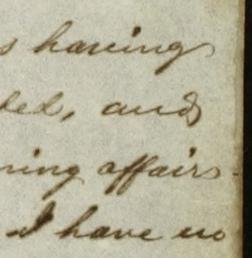 s having
ded, and
ning affairs
I have no